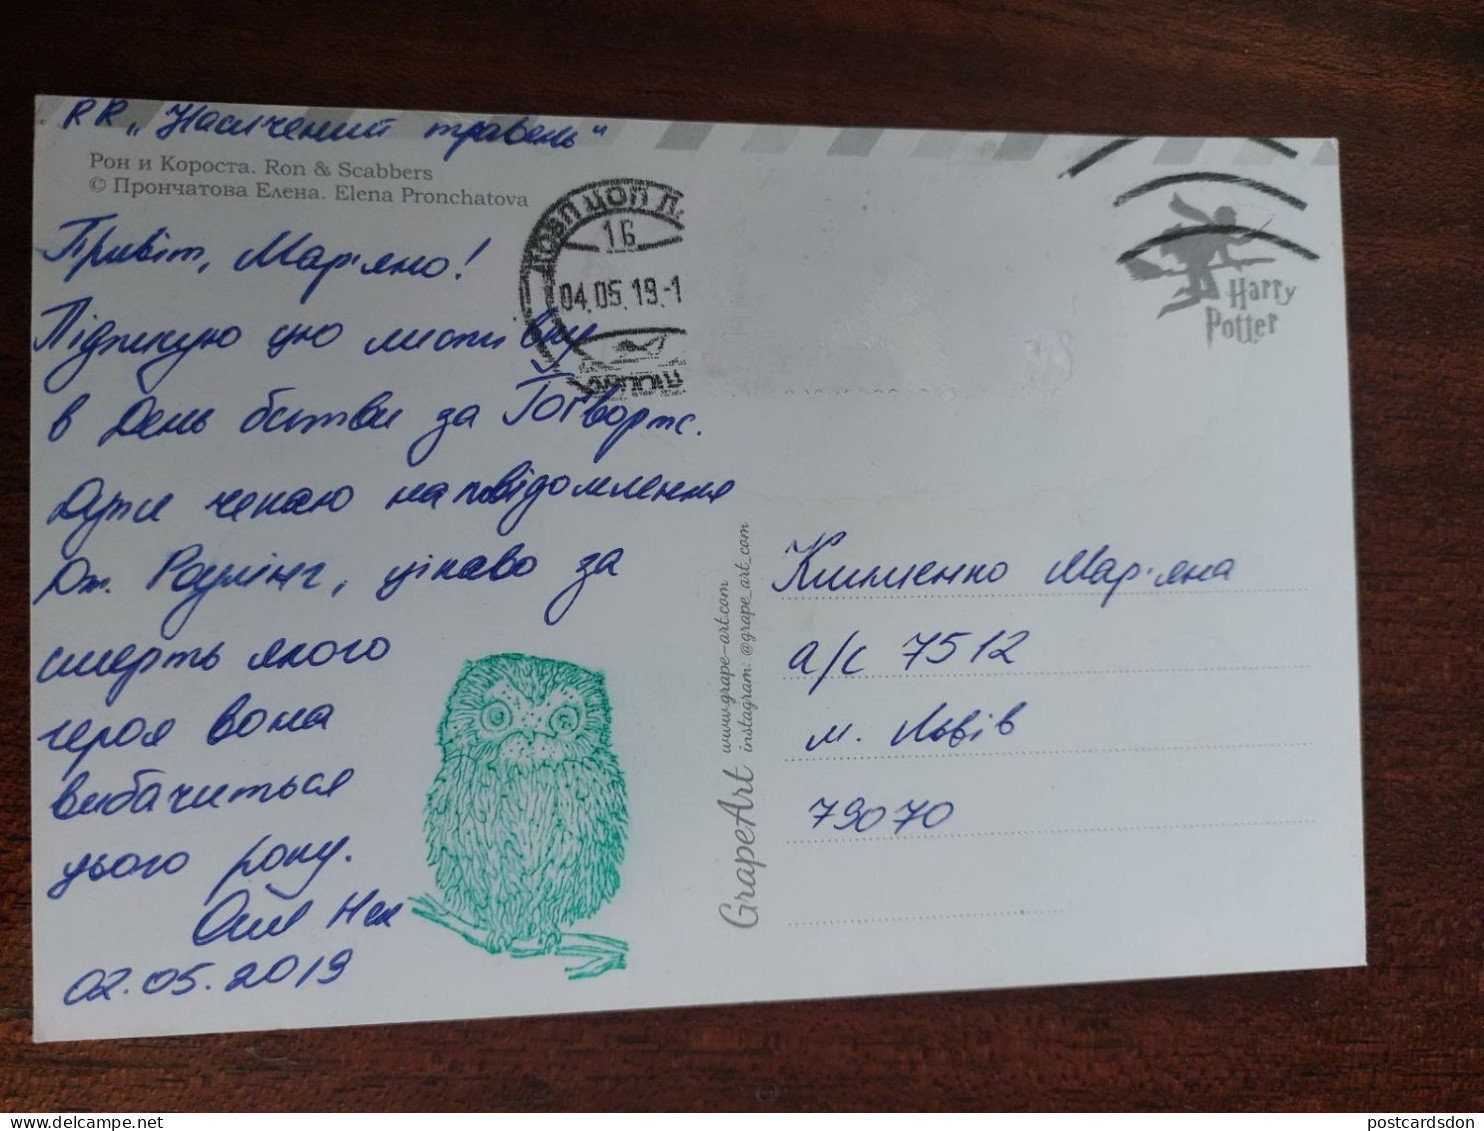 RR „Насичений травень"
Рон и Короста. Ron & Scabbers
© Прончатова Елена. Elena Pronchatova
Привіт, Мар'яно!
Підписую цю листівку
в День битви за Гоґвортс.
Дуже чекаю на повідомлення
Дж. Роулінг, цікаво за
смерть якого
героя вона
вибачиться
цього року.
02.05.2019
16
04.05.19.-1
Harry
Potter
GrapeArt www.grape-art.com
instagram: @grape_art_com
Клименко Мар'яна
а/с 7512
м. Львів
79070
postcardsdon